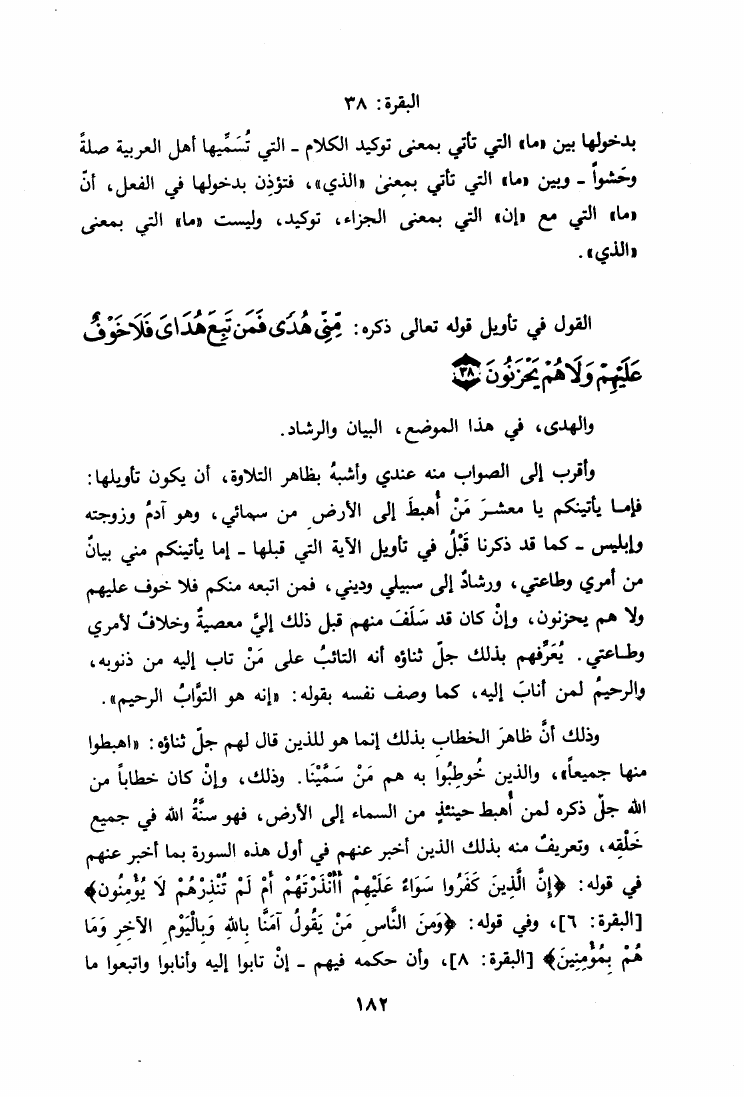 البقرة: ٣٨
بدخولها بين «ما» التي تأتي بمعنى توكيد الكلام ـ التي تُسَمِّيها أهل العربية صلةً
وحَشواً ـ وبين «ما» التي تأتي بمعنىٰ «الذي»، فتؤذِن بدخولها في الفعل، أنّ
«ما» التي مع «إن» التي بمعنى الجزاء، توكيد، وليست «ما» التي بمعنى
«الذي».
القول في تأويل قوله تعالى ذكره: مِّنِّى هُدًى فَمَن تَبِعَ هُدَاىَ فَلَا خَوْفٌ
عَلَيْهِمْ وَلَا هُمْ يَحْزَنُونَ ٣٨
والهدى، في هذا الموضع، البيان والرشاد.
وأقرب إلى الصواب منه عندي وأشبهُ بظاهر التلاوة، أن يكون تأويلها:
فإما يأتينكم يا معشرَ مَنْ أُهبطَ إلى الأرضِ من سمائي، وهو آدمُ وزوجته
وإبليس ـ كما قد ذكرنا قَبْلُ في تأويل الآية التي قبلها ـ إما يأتينكم مني بيانٌ
من أمري وطاعتي، ورشادٌ إلى سبيلي وديني، فمن اتبعه منكم فلا خوف عليهم
ولا هم يحزنون، وإنْ كان قد سَلَفَ منهم قبل ذلك إليَّ معصيةٌ وخلافٌ لأمري
وطاعتي. يُعَرِّفهم بذلك جلّ ثناؤه أنه التائبُ على مَنْ تاب إليه من ذنوبه،
والرحيمُ لمن أنابَ إليه، كما وصف نفسه بقوله: «إنه هو التوَّابُ الرحيم».
وذلك أنَّ ظاهرَ الخطابِ بذلك إنما هو للذين قال لهم جلّ ثناؤه: «اهبطوا
منها جميعاً»، والذين خُوطِبُوا به هم مَنْ سَمَّيْنَا. وذلك، وإنْ كان خطاباً من
الله جلّ ذكره لمن أُهبط حينئذٍ من السماء إلى الأرض، فهو سنَّةُ الله في جميع
خَلْقِه، وتعريفٌ منه بذلك الذين أخبر عنهم في أول هذه السورة بما أخبر عنهم
في قوله: ﴿إِنَّ الَّذِينَ كَفَرُوا سَوَاءٌ عَلَيْهِمْ أَأَنْذَرْتَهُمْ أَمْ لَمْ تُنْذِرْهُمْ لَا يُؤْمِنُون﴾
[البقرة: ٦]، وفي قوله: ﴿وَمِنَ النَّاسِ مَنْ يَقُولُ آمَنَّا بِاللهِ وَبِالْيَوْمِ الآخِرِ وَمَا
هُمْ بِمُؤْمِنِينَ﴾ [البقرة: ٨]، وأن حكمه فيهم ـ إنْ تابوا إليه وأنابوا واتبعوا ما
١٨٢